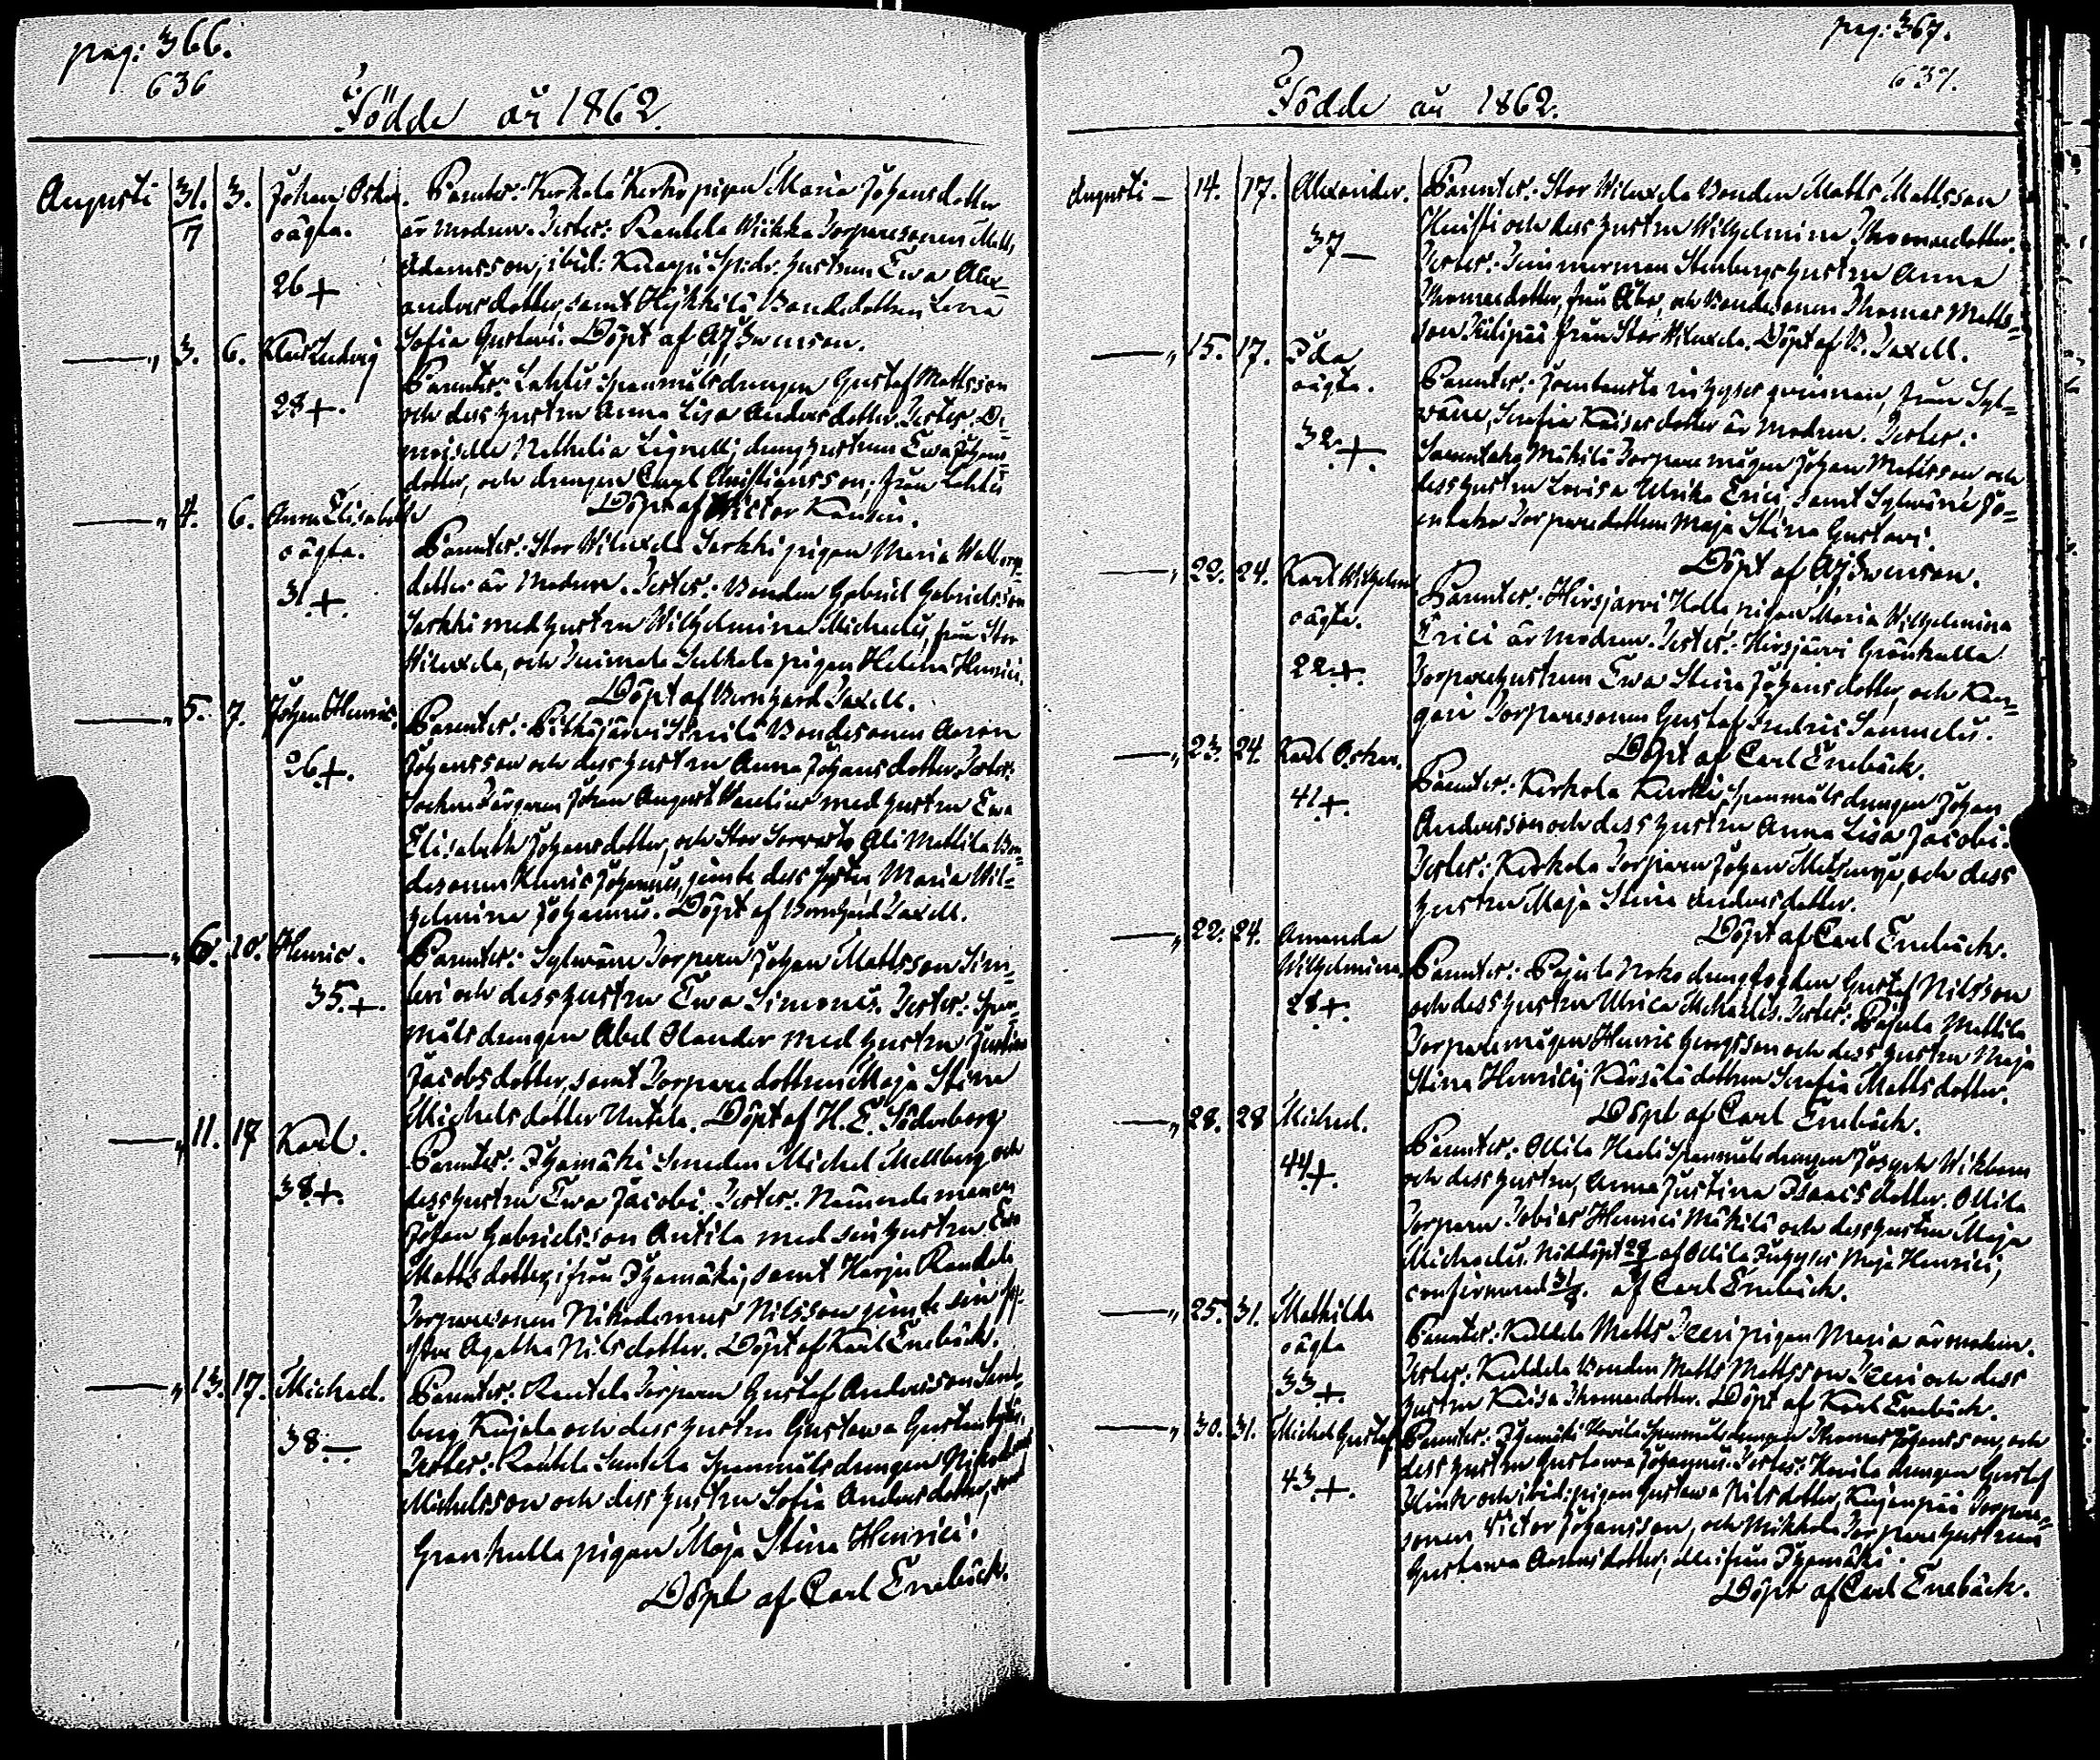 pag: 366.
636
Födde år 1862.
Augusti 31. 3. Johan Oskar. Parenter: Kerkola Kerko pigan Maria Johansdotter
7 oägta. är modren. Testes: Rautela Wickka Torparesonen Matts
Adamsson, ibid: Knaapi Sp:dr. hustrun Ewa Alex-
26 + andersdotter, samt Hykkilä Bondedottren Lovisa
Sofia Gustavi. Döpt af AJ Swenson.
" 3. 6. Klas Ludvig Parenter: Lahtis Spanmålsdrengen Gustaf Mattsson
28 +. och dess hustru Anna Lisa Andersdotter. Testes: De-
moiselle Nathalia Lignell; drenghustrun Ewa Johans
dotter, och drengen Carl Christiansson, från Lahtis
Döpt af Victor
" 4. 6. Anna Elisabeth
oägta. Parenter: Stor Wiluxela Jerkki pigan Maria
31 +. dotter är Modren. Testes: Bonden Gabriel Gabrielsson
Jerkki med hustru Wilhelmina Michaelis, från Stor
Wiluxela, och pigan Helena Henrici.
Döpt af Bernhard Taxell.
" 5. 7. Johan Henric. Parenter: Pitkäjärvi Bondesonen Aaron
26 +. Johansson och dess hustru Anna Johansdotter. Testes:
Sockne Färgaren Johan August med hustru Ewa
Elisabeth Johansdotter, och Stor Ali Mattila Bon-
desonen Henric Johannis, jemte dess syster Maria Wil-
helmina Johannis. Döpt af Bernhard Taxell.
" 6. 10. Henric. Parenter: Sylwäne Torparn Johan Mattsson
35. +. och dess hustru Ewa Simonis. Testes: Span-
målsdrengen Abel Olander med hustru Justina
Jacobsdotter, samt Torparedottren Maja Stina
Michelsdotter Untila. Döpt af H. E. Söderberg
" 11. 17 Karl. Parenter: Ihamäki Smeden Michel Mellberg och
38 +. dess hustru Ewa Jacobi. Testes: Nämndemannen
Johan Gabrielsson Antila med sin hustru Ewa
Mattsdotter, ifrån Ihamäki, samt Harju
Torparesonen Nikodemus Nilsson jemte sin sy-
ster Agatha Nilsdotter. Döpt af Karl Enebäck.
" 13. 17. Michael. Parenter: Rautela Torparn Gustaf Andersson
berg Kujala och dess hustru Gustawa
38 — Testes: Rautela Spanmålsdrengen
Michelsson och dess hustru Sofia Andersdotter, samt
Grankulla pigan Maja Stina Henrici.
Döpt af Carl Enebäck.
pag: 367.
637.
Födde år 1862.
Augusti — 14. 17. Alexander. Parenter: Stor Wiluxela Bonden Matts Mattsson
och dess hustru Wilhelmina Thomasdotter.
37 — Testes: Timmerman Stenbergs hustru Anna
Thomasdotter, från Åbo, och Bondesonen Thomas Matts-
son från Stor Wiluxela. Döpt af B. Taxell.
" 15. 17. Ida
oägta. Parenter: inhyses qvinnan, från Syl-
wäne, Serafia Kaisasdotter är Modren. Testes:
32 +. Mäkilä Torparemågen Johan Mattsson och
dess hustru Lovisa Ulrika Erici, samt Sylwäne
Torparedottren Maja Stina Gustavi.
Döpt af AJ Swenson.
" 22. 24. Karl Wilhelm Parenter: Hirsjärvi Kolla pigan Maria Wilhelmina
oägta. Erici är Modren. Testes: Hirsjärvi Grönkulla
22 +. Torparehustrun Ewa Stina Johansdotter, och
Torparesonen Gustaf Fredric Samuelis.
Döpt af Carl Enebäck.
" 23. 24. Karl Oskar. Parenter: Kerkola Kurki Spanmålsdrengen Johan
41 +. Andersson och dess hustru Anna Lisa Jacobi.
Testes: Kerkola Torparn Johan Metsenoja, och dess
hustru Maja Stina Andersdotter.
Döpt af Carl Enebäck.
" 22. 24. Amanda
Wilhelmina. Parenter: Pajula Noko drengfogden Gustaf Nilsson
28 +. och dess hustru Ulrica Michaelis. Testes: Pajula Mattila
Torparemågen Henric Georgsson och dess hustru Maja
Stina Henrici; dottren Serafia Mattsdotter.
Döpt af Carl Enebäck.
" 28. 28 Michael. Parenter: Ollila Heeli Spanmålsdrengen Joseph Wikbom
44 +. och dess hustru, Anna Justina Isaacsdotter. Ollila
Torparn Tobias Henrici Mäkilä och dess hustru Maja
Michaelis. Nöddöpt 28 af Ollila Maja Henrici;
confirmerad 31/8. af Carl Enebäck.
" 25. 31. Mathilda Parenter: Kultela Matts Iseri pigan Maria är modren.
oägta Testes: Kultela Bonden Matts Mattsson Iseri och dess
33 +. hustru Kaisa Thomasdotter. Döpt af Karl Enebäck.
" 30. 31. Michel Gustaf Parenter: Ihamäki Spanmålsdrengen Thomas Johansson och
dess hustru Gustawa Johannis. Testes: drengen Gustaf
43 +. Flink och ibid: pigan Gustawa Nilsdotter, Kujanpää Torpare-
sonen Victor Johansson, och Mikkola Torparehustrun
Gustawa Aaronsdotter; alla ifrån Ihamäki.
Döpt af Carl Enebäck.